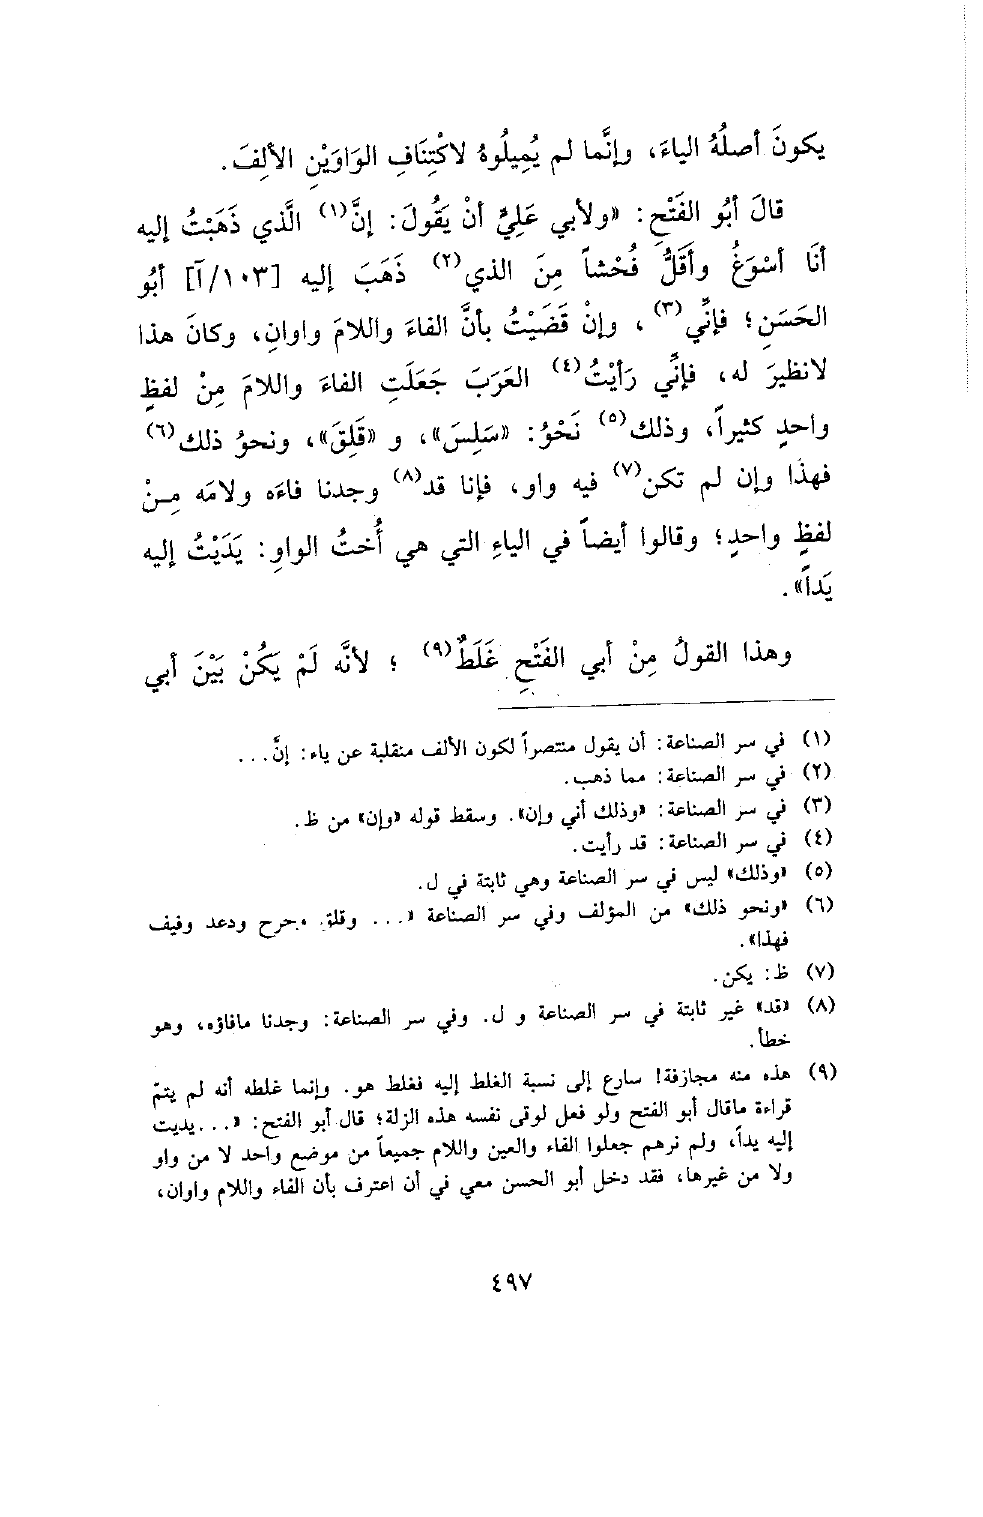 يكونَ أصلُهُ الياءَ، وإنَّما لم يُمِيلُوهُ لاكْتِنَافِ الوَاوَيْنِ الألِفَ.
قالَ أبُو الفَتْحِ: «ولأبي عَلِيٍّ أنْ يَقُولَ: إنَّ(١) الَّذي ذَهَبْتُ إليه
أنَا أسْوَغُ وأقَلُّ فُحْشاً مِنَ الذي(٢) ذَهَبَ إليه [١٠٣/آ] أبُو
الحَسَنِ؛ فإنِّي(٣)، وإنْ قَضَيْتُ بأنَّ الفاءَ واللامَ واوانِ، وكانَ هذا
لانظيرَ له، فإنِّي رَأيْتُ(٤) العَرَبَ جَعَلَتِ الفاءَ واللامَ مِنْ لفظٍ
واحدٍ كثيراً، وذلك(٥) نَحْوُ: «سَلِسَ»، و «قَلِقَ»، ونحوُ ذلك(٦)
فهذا وإن لم تكن(٧) فيه واو، فإنا قد(٨) وجدنا فاءَه ولامَه مِنْ
لفظٍ واحدٍ؛ وقالوا أيضاً في الياءِ التي هي أُختُ الواوِ: يَدَيْتُ إليه
يَداً».
وهذا القولُ مِنْ أبي الفَتْحِ غَلَطٌ(٩)؛ لأنَّه لَمْ يَكُنْ بَيْنَ أبي
(١) في سر الصناعة: أن يقول منتصراً لكون الألف منقلبة عن ياء: إنَّ...
(٢) في سر الصناعة: مما ذهب.
(٣) في سر الصناعة: «وذلك أني وإن». وسقط قوله «وإن» من ظ.
(٤) في سر الصناعة: قد رأيت.
(٥) «وذلك» ليس في سر الصناعة وهي ثابتة في ل.
(٦) «ونحو ذلك» من المؤلف وفي سر الصناعة «... وقلق وجرح ودعد وفيف
فهذا».
(٧) ظ: يكن.
(٨) «قد» غير ثابتة في سر الصناعة و ل. وفي سر الصناعة: وجدنا مافاؤه، وهو
خطأ.
(٩) هذه منه مجازفة! سارع إلى نسبة الغلط إليه فغلط هو. وإنما غلطه أنه لم يتمّ
قراءة ماقال أبو الفتح ولو فعل لوقى نفسه هذه الزلة؛ قال أبو الفتح: «...يديت
إليه يداً، ولم نرهم جعلوا الفاء والعين واللام جميعاً من موضع واحد لا من واو
ولا من غيرها، فقد دخل أبو الحسن معي في أن اعترف بأن الفاء واللام واوان،
٤٩٧